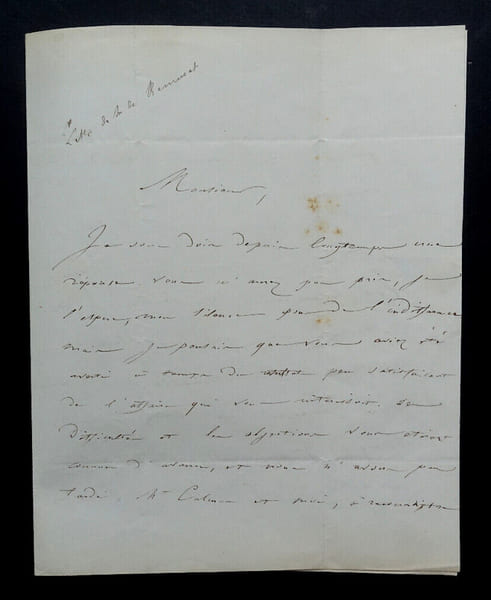 Lettre de M. de Rémusat
Monsieur,
Je vous dois depuis longtemps une
réponse. Vous n'aurez pas pris, je
l'espère, mon silence pour de l'indifférence
mais je pensais que vous aviez été
averti à temps du résultat peu satisfaisant
de l'affaire qui vous intéressait. Les
difficultés et les objections vous étaient
connues d'avance, et nous n'avons pas
tardé, Mr et moi, à reconnaître